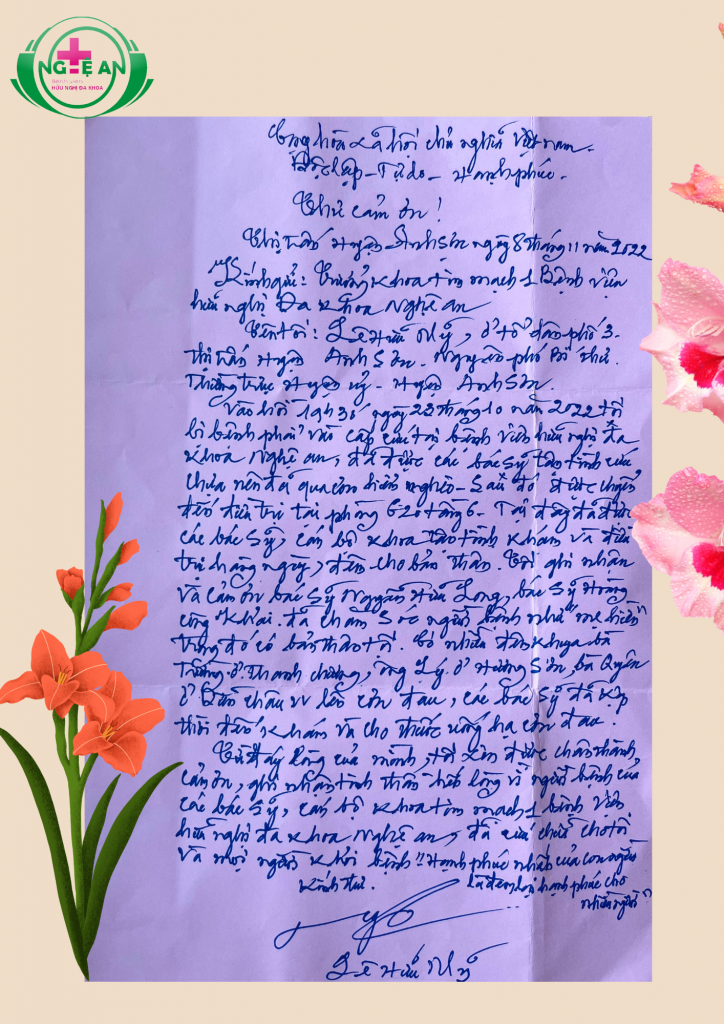 NGHỆ AN
BỆNH VIỆN
HỮU NGHỊ ĐA KHOA
Cộng hòa xã hội chủ nghĩa Việt nam.
Độc lập - Tự do - Hạnh phúc.
Thư cảm ơn!
Thị trấn huyện Anh Sơn ngày 8 tháng 11 năm 2022
Kính gửi: Trưởng khoa tim mạch 1 Bệnh viện
hữu nghị Đa khoa Nghệ an
Tên tôi: Lê Hữu Mỹ, ở tổ dân phố 3.
Thị trấn huyện Anh Sơn. Nguyên phó Bí thư.
Thường trực Huyện ủy - Huyện Anh Sơn.
Vào hồi 19h30 ngày 23 tháng 10 năm 2022 tôi
bị bệnh phải vào cấp cứu tại bệnh viện hữu nghị đa
khoa Nghệ an, đã được các bác sỹ tận tình cứu
chữa nên đã qua cơn hiểm nghèo. Sau đó được chuyển
đến điều trị tại phòng 620 tầng 6. Tại đây đã được
các bác sỹ, cán bộ khoa tận tình khám và điều
trị hàng ngày, đến cho bản thân. Tôi ghi nhận
và cảm ơn bác sỹ Nguyễn Hữu Long, bác sỹ Hoàng
công Khải. đã chăm sóc người bệnh như "mẹ hiền"
trong đó có bản thân tôi. Có nhiều đêm khuya bà
Trường ở Thanh chương, ông Lý ở Hương Sơn, bà Quyên
ở Quỳ châu vv lên cơn đau, các bác sỹ đã kịp
thời đến khám và cho thuốc uống hạ cơn đau.
Từ đáy lòng của mình, tôi xin được chân thành
cảm ơn, ghi nhận tinh thần hết lòng vì người bệnh của
các bác sỹ, cán bộ khoa tim mạch 1 bệnh viện
hữu nghị đa khoa Nghệ an, đã cứu chữa cho tôi
và mọi người khỏi bệnh "Hạnh phúc nhất của con người
Kính thư. là đem lại hạnh phúc cho
nhiều người"
Lê Hữu Mỹ